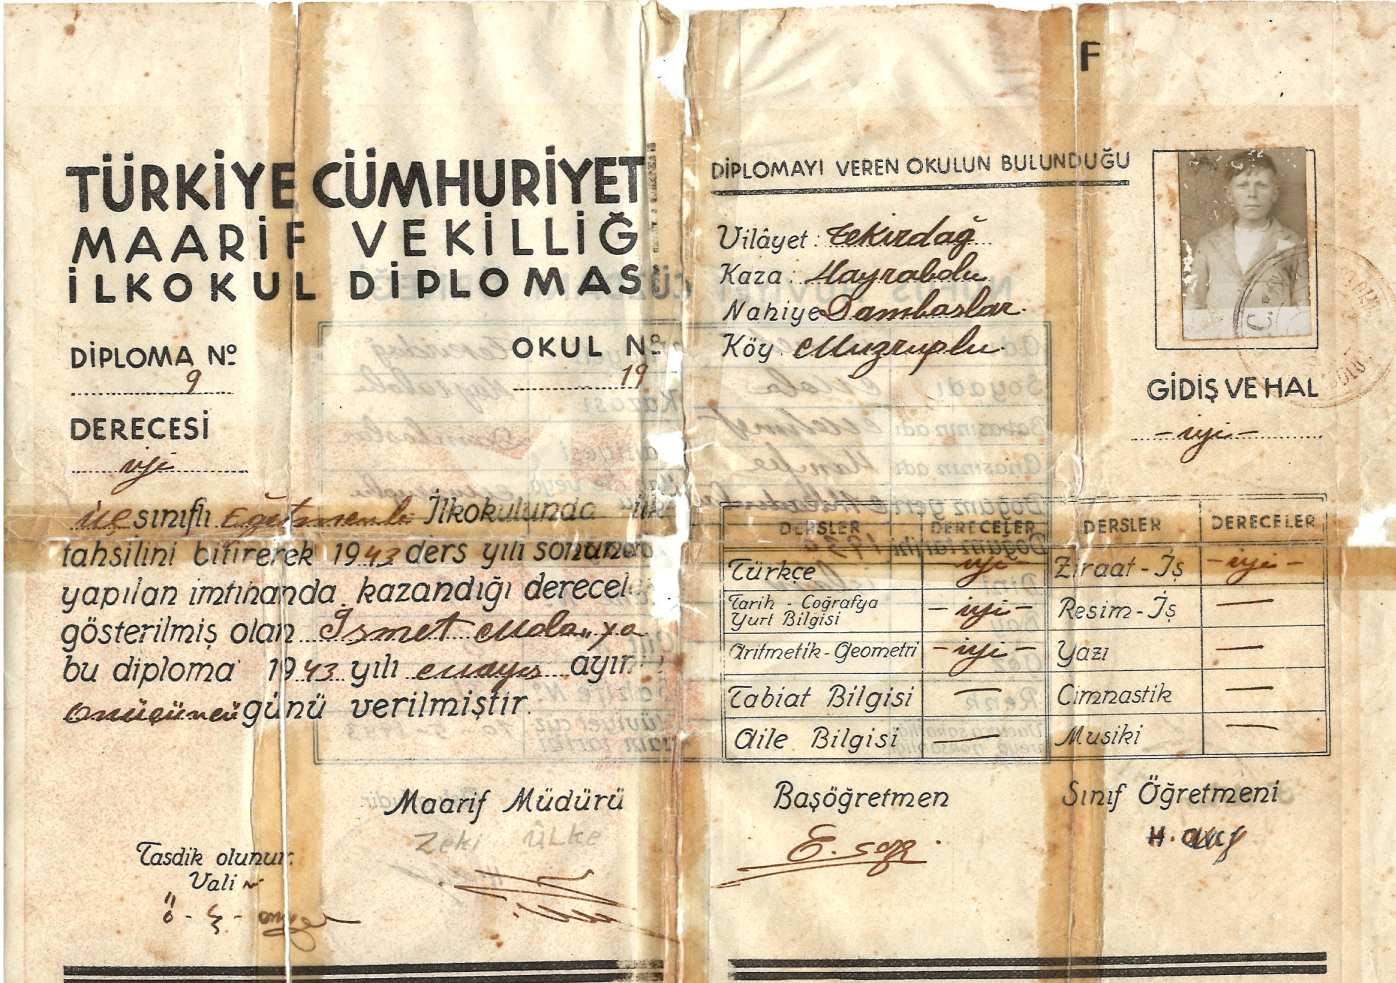 F
TÜRKİYE CÜMHURİYET
MAARİF VEKİLLİĞ
İLKOKUL DİPLOMAS
DİPLOMA Nº
9
OKUL Nº
19
DERECESİ
iyi
üç sınıflı Eğitmenli İlkokulunda ilk
tahsilini bitirerek 1943 ders yılı sonunda
yapılan imtihanda kazandığı derecele
gösterilmiş olan İsmet Mola,,ya
bu diploma 1943 yılı Mayıs ayın
onüçüncü günü verilmiştir.
Maarif Müdürü
Zeki ÜLKE
Tasdik olunur.
Vali
DİPLOMAYI VEREN OKULUN BULUNDUĞU
Vilâyet: Tekirdağ
Kaza: Hayrabolu
Nahiye Dambaslar
Köy: Muzruplu
GİDİŞ VE HAL
-iyi-
DERSLER DERECELER DERSLER DERECELER
Türkçe iyi Ziraat-İş -iyi-
Tarih - Coğrafya
Yurt Bilgisi -iyi- Resim-İş —
Aritmetik-Geometri -iyi- Yazı —
Tabiat Bilgisi — Cimnastik —
Aile Bilgisi — Musiki —
Başöğretmen
Sınıf Öğretmeni